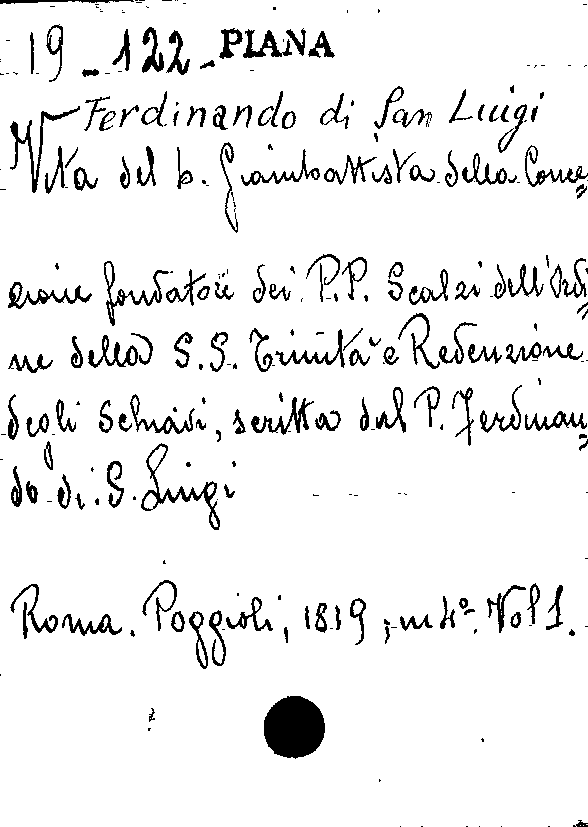 19-122-PIANA
Ferdinando di San Luigi
Vita del b. Giambattista della Conce=
zione fondatore dei P.P. Scalzi dell'Ordi=
ne della S.S. Trinità e Redenzione
degli Schiavi, scritta dal P. Ferdinan=
do di S. Luigi
Roma. Poggioli, 1819, in 4º. Vol 1.